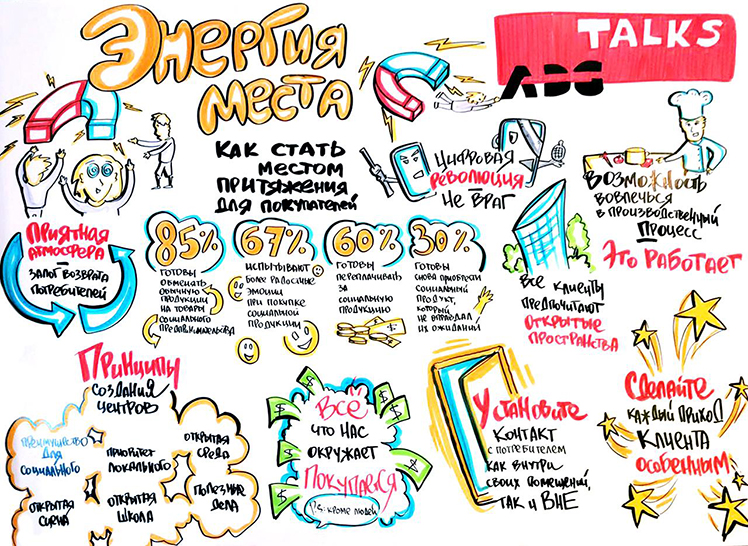 Энергия
места
TALKS
ADG
Как стать
местом
притяжения
для покупателей
Цифровая
революция
не враг
Возможность
вовлечься
в производственный
процесс
Это работает
Приятная
атмосфера –
залог возврата
потребителей
85%
готовы
обменять
обычную
продукцию
на товары
социального
предпринимательства
67%
испытывают
более радостные
эмоции
при покупке
социальной
продукции
60%
готовы
переплачивать
за
социальную
продукцию
30%
готовы
снова приобрести
социальный
продукт,
который
не оправдал
их ожиданий
Все клиенты
предпочитают
открытые
пространства
Принципы
создания
центров
Преимущество
для
социального
Приоритет
локального
Открытая
среда
Открытая
сцена
Открытая
школа
Полезные
дела
Всё
что нас
окружает
покупается
P.S: кроме людей
Установите
контакт
с потребителем
как внутри
своих помещений,
так и вне
Сделайте
каждый приход
клиента
особенным